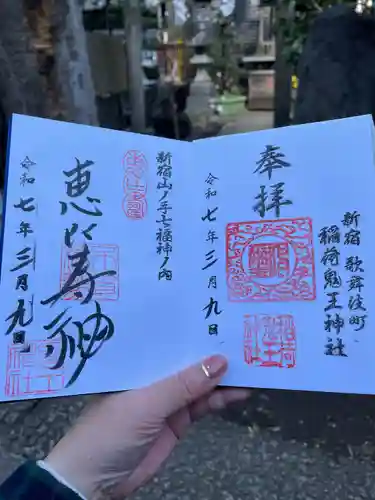 奉拝
新宿 歌舞伎町
稲荷鬼王神社
令和七年三月九日
新宿山ノ手七福神ノ内
恵比寿神
令和七年三月九日